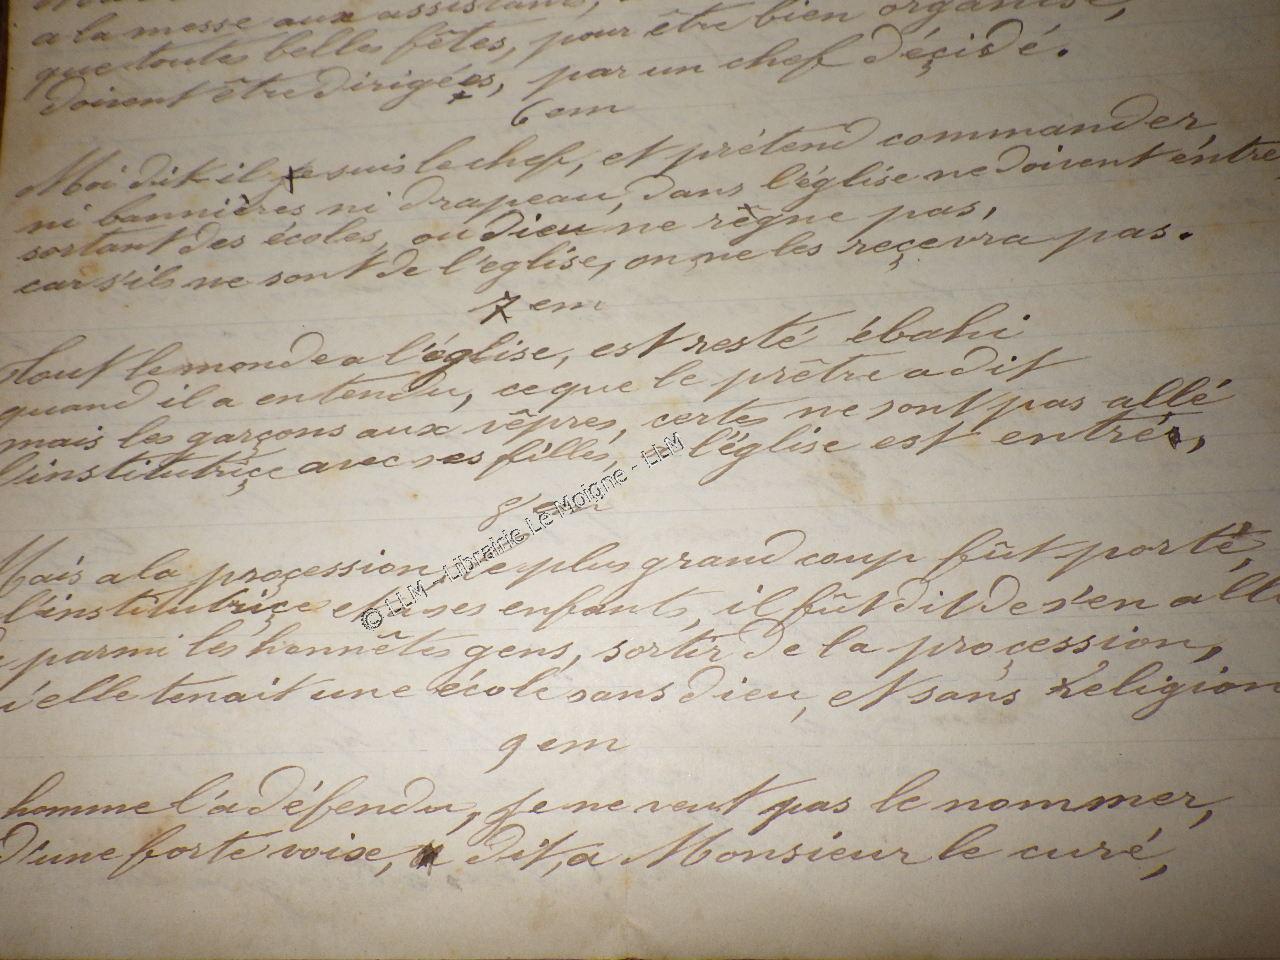 a la messe aux assistants,
que toutes belles fêtes, pour être bien organisé,
doivent être dirigées, par un chef déçidé.
6 em
Moi dit il je suis le chef, et prétend commander,
ni bannières ni drapeau, dans l'église ne doivent entre
sortant des écoles, ou dieu ne règne pas,
car s'ils ne sont de l'eglise, on ne les reçevra pas.
7 em
tout le monde a l'église, est resté ébahi
quand il a entendu, ce que le prêtre a dit
mais les garçons aux vêpres, certes ne sont pas allé
l'institutriçe avec ses filles, a l'église est entrés,
8 em
Mais a la proçession, le plus grand coup fût porté,
l'institutriçe et ses enfants, il fût dit de s'en all
parmi les honnêtes gens, sortir de la proçession,
elle tenait une école sans dieu, et sans religion
9 em
homme l'a défendu, je ne veut pas le nommer,
d'une forte voix, dit, a Monsieur le curé,
© LLM - Librairie Le Moigne - LLM